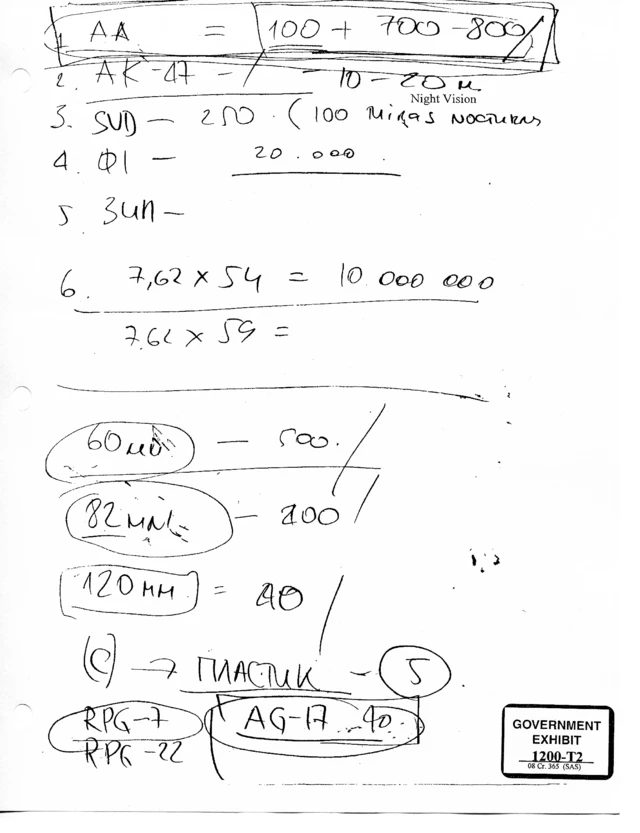 1. AA = 100 + 700-800/
2. AK-47 - / - 10-20 м
Night Vision
3. SVD - 250. (100 Miras nocturnas
4. Ф1 - 20.000
5 ЗИП -
6. 7,62 x 54 = 10 000 000
7.62 x 59 =
60 мм - 500. /
82 мм - 200 /
120 мм = 40 /
(C) → ПЛАСТИК - 5
RPG-7 AG-17 40
RPG-22
GOVERNMENT
EXHIBIT
1200-T2
08 Cr. 365 (SAS)